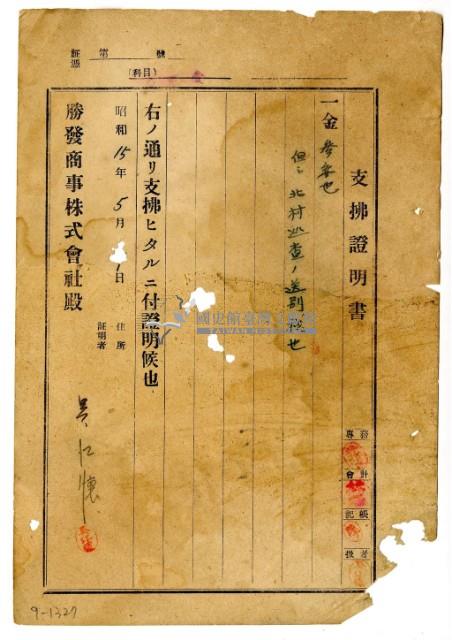 証憑 第 號
(科目)
支拂證明書
一金 參 也
但シ北村巡查ノ送別 也
右ノ通リ支拂ヒタルニ付證明候也
昭和15年5月1日
住所
証明者
吳 懷
勝發商事株式會社殿
專務
會計
記帳
扱者
國史館臺灣文獻館
TAIWAN
9-1327